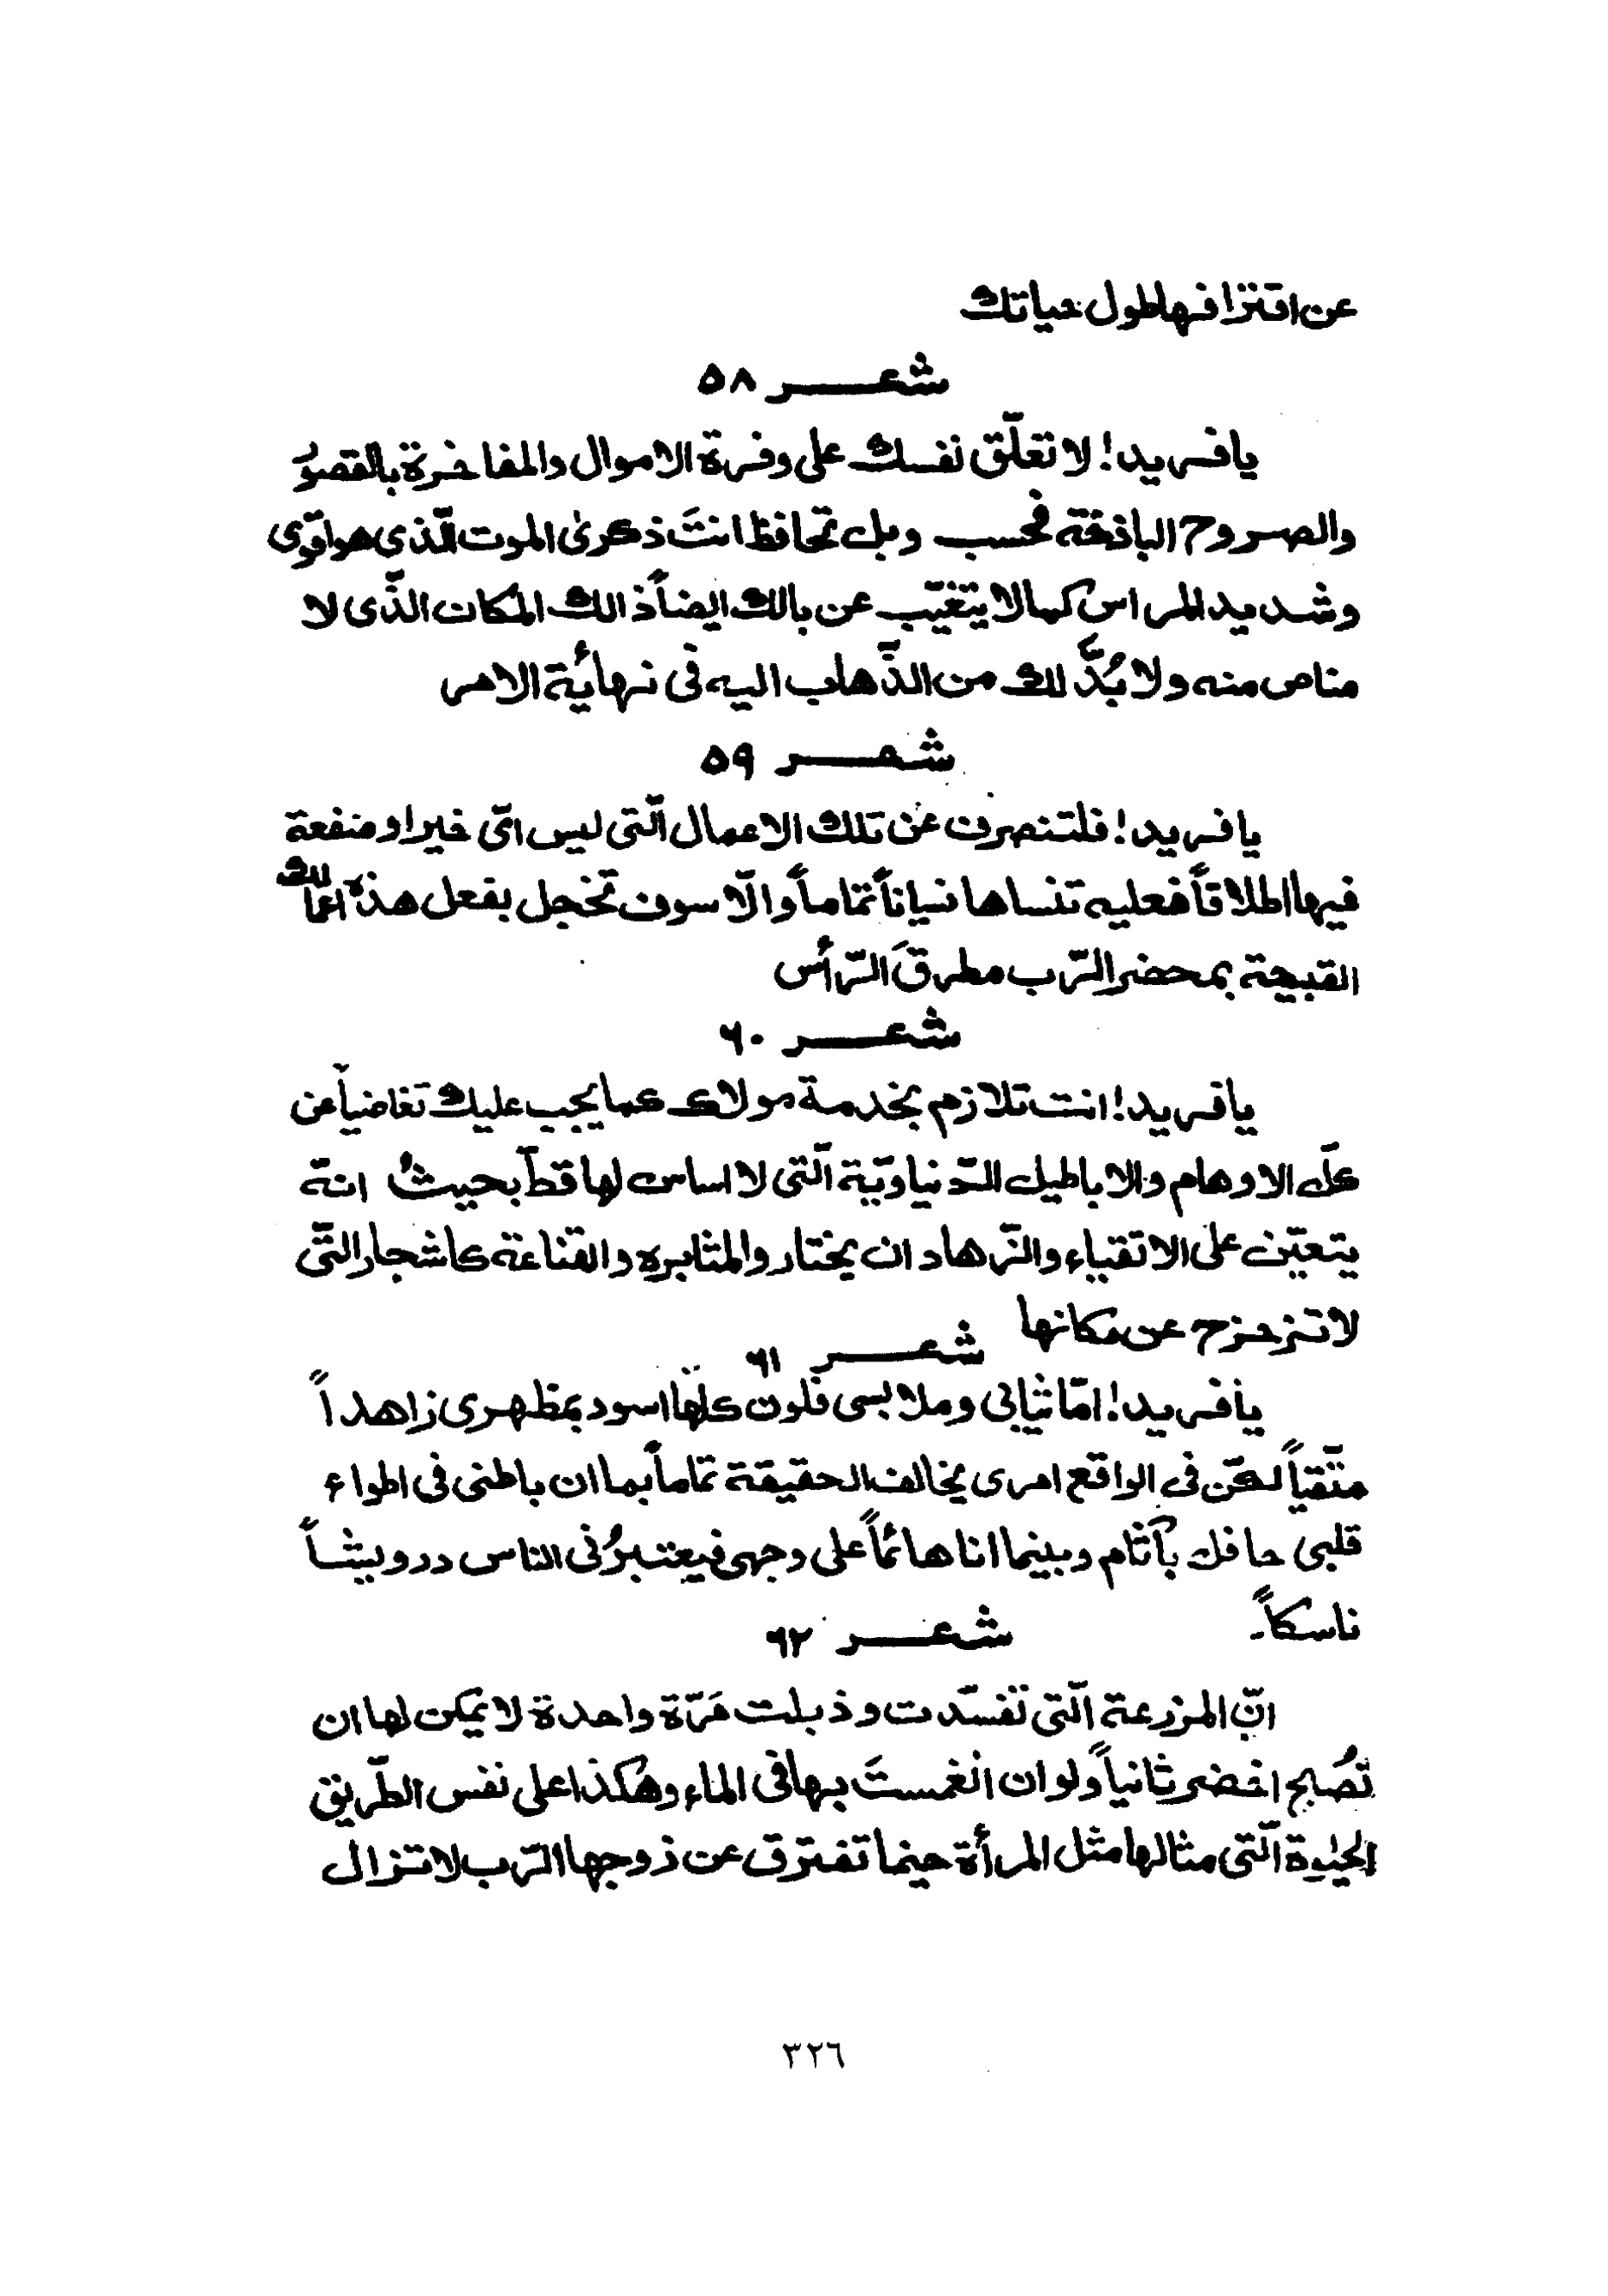 عن اقترافها طول حياتك
شعر ٥٨
يا فريد! لا تعلّق نفسك على وفرة الاموال والمفاخرة بالقصور
والصروح الباذخة فحسب وبل تحافظ انتَ ذكرىٰ الموت الّذى هو اقوى
وشديد المراس كما لا يتغيّب عن بالك ايضاً ذالك المكان الذّى لا
مناص منه ولا بُدَّ لك من الذّهاب اليه فى نهائية الامر
شعر ٥٩
يا فريد! فلتنصرف عن تلك الاعمال الّتى ليس اىّ خير او منفعة
فيها اطلاقاً فعليه تنساها نسياناً تماماً والّا سوف تخجل بفعل هذه اعمالك
القبيحة بمحضر الرّب مطرقَ الرّأس
شعر ٦٠
يا فريد! انت تلازم بخدمة مولاك كما يجب عليك تغاضياً عن
كلّ الاوهام والاباطيل الدّنياويّة الّتى لا اساس لها قطّ بحيثُ انّه
يتعيّن على الاتقياء والزّهاد ان يختار والمثابره والقناعة كاشجار التّى
لا تزحزح عن مكانها
شعر ٦١
يا فريد! امّا ثيابى وملابسى فلون كلّها اسود بمظهرى زاهداً
متّقياً لكنّ فى الواقع امرى يخالف الحقيقة تماماً بما ان باطنى فى اطواء
قلبى حافل بآثام وبينما انا هائماً على وجهى فيعتبرُنى الناس درويشاً
ناسكاً۔
شعر ٦٢
انّ المزرعة الّتى تفسّدت وذبلت مَرّة واحدة لا يمكن لها ان
تُصبح اخضر ثانياً ولو ان انغمستَ بها فى الماء وهٰكذا على نفس الطّريق
الحيٰوة الّتى مثالها مثل المرأة حينما تفترق عن زوجها الرّب لا تزال
٣٢٦